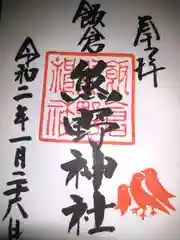 奉拝
飯倉
熊野神社
令和二年一月二十六日